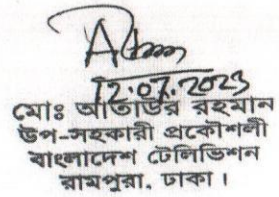 12.07.2023
মোঃ আতাউর রহমান
উপ-সহকারী প্রকৌশলী
বাংলাদেশ টেলিভিশন
রামপুরা, ঢাকা।